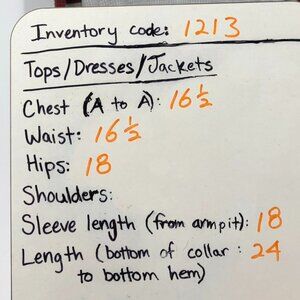 Inventory code: 1213
Tops/Dresses/Jackets
Chest (A to A): 16 ½
Waist: 16 ½
Hips: 18
Shoulders:
Sleeve length (from armpit): 18
Length (bottom of collar : 24
to bottom hem)